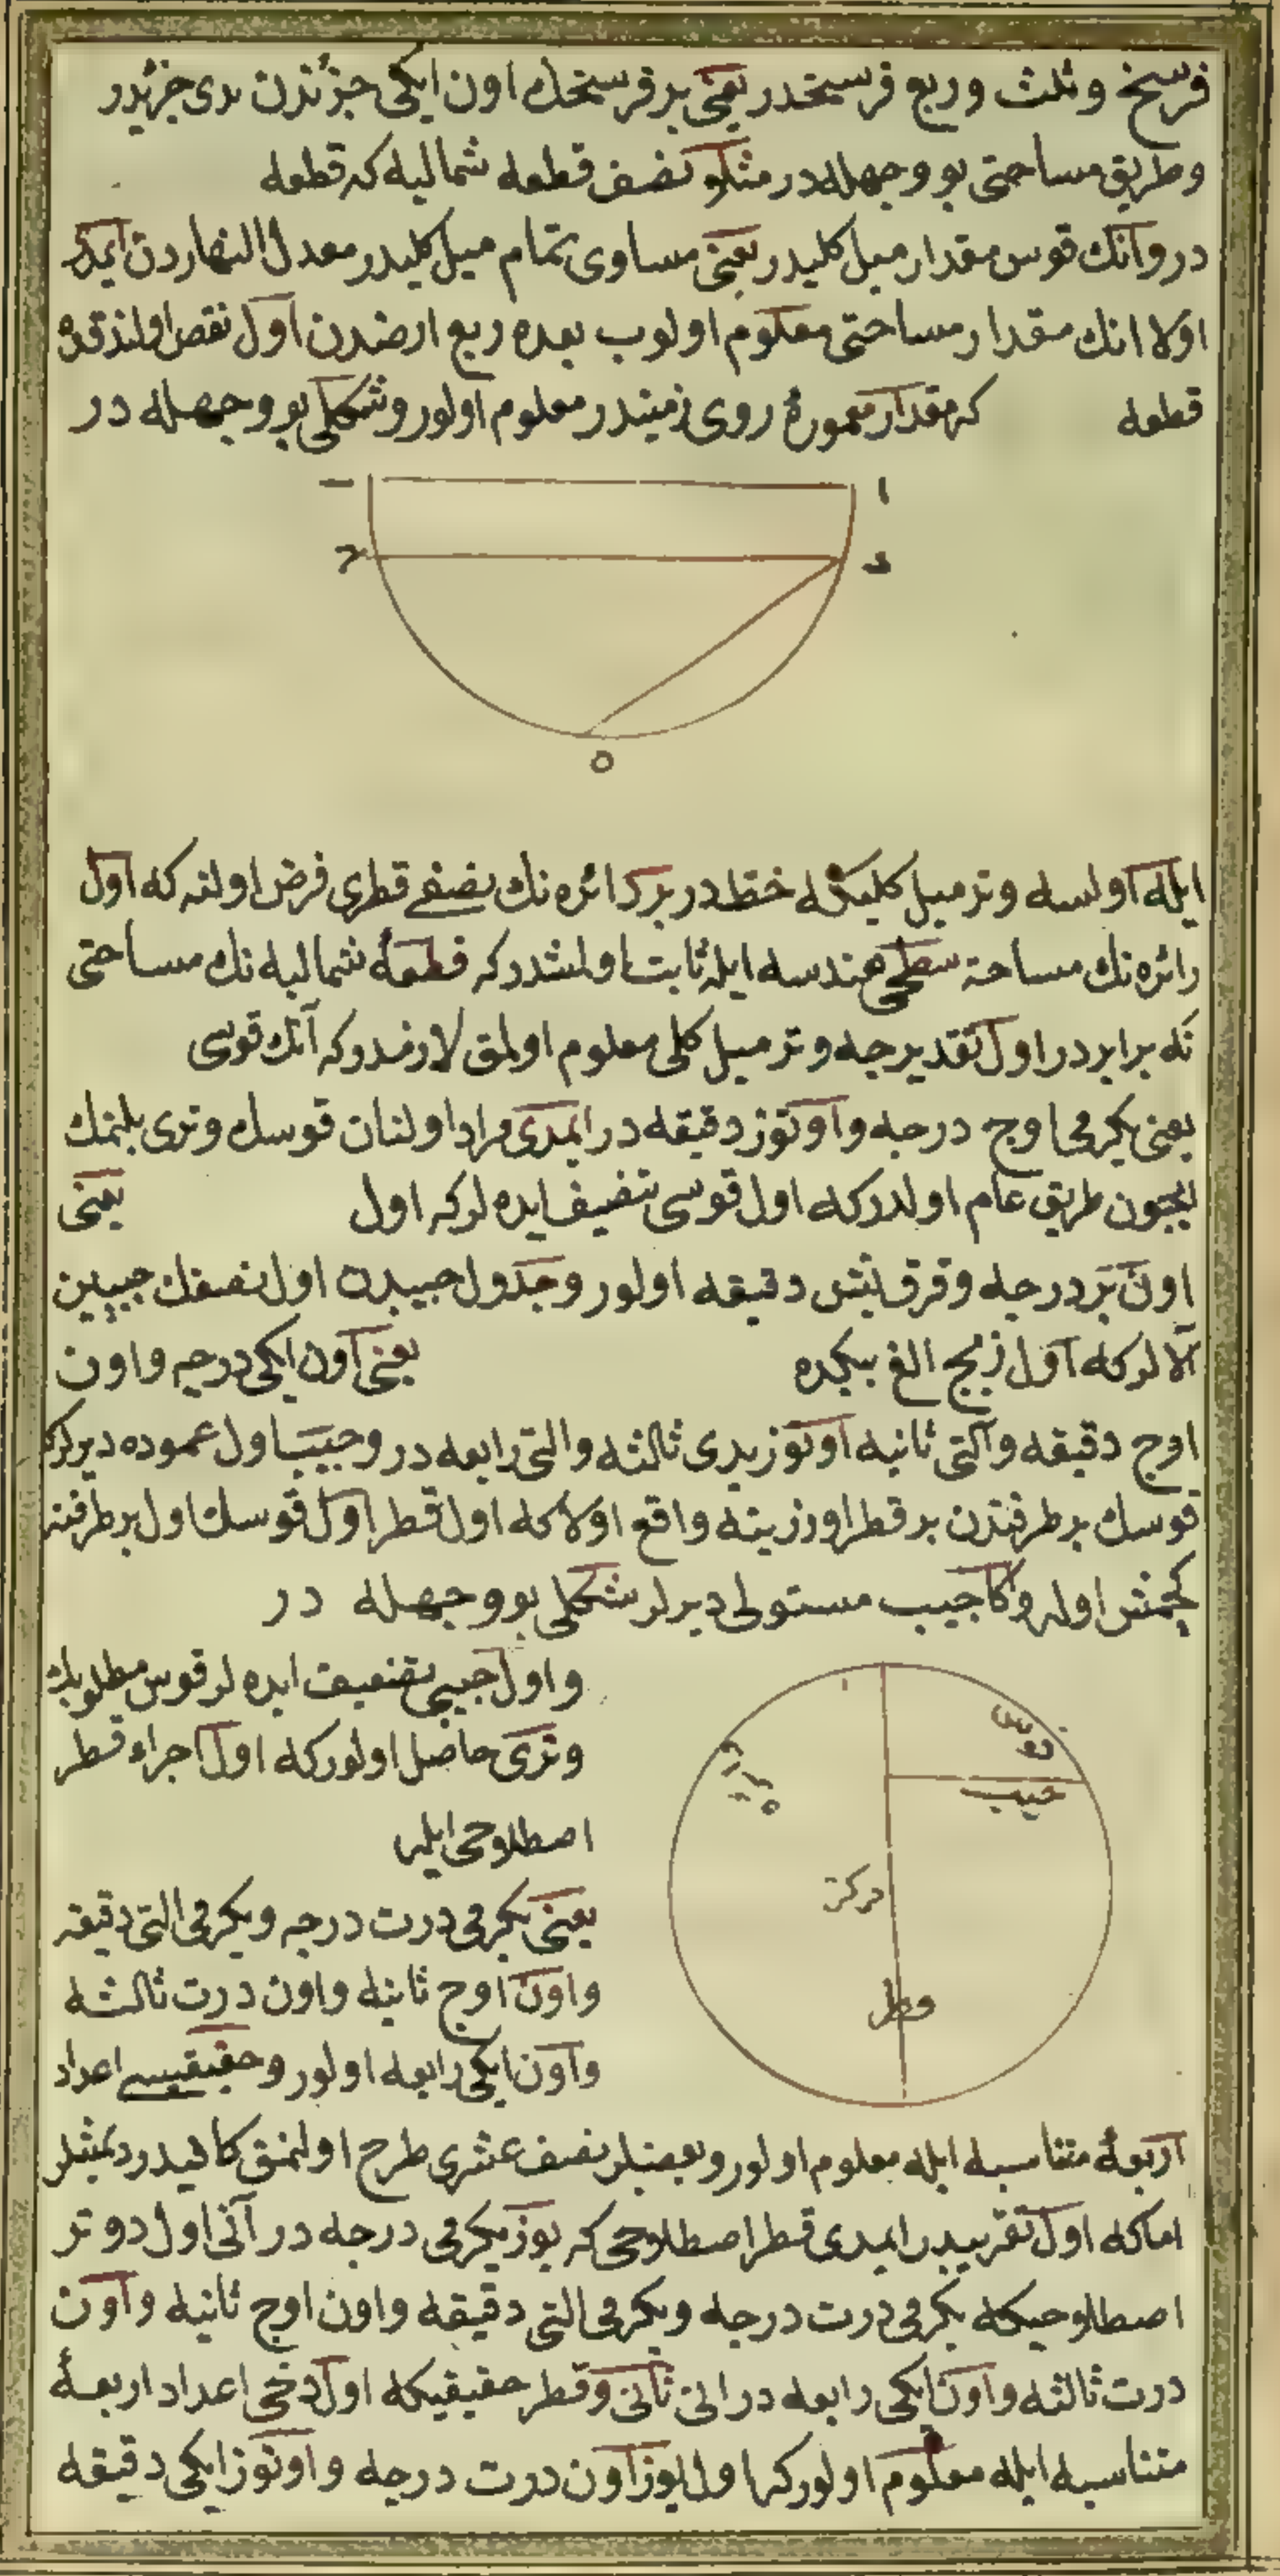 فرسخ وثلث وربع فرسخدر یعنی بر فرسخك اون ایكی جزئندن یدی جزئیدر
وطریق مساحتی بو وجهله در مثلا نصف قطعه شمالیه كه قطعه
در وانك قوس مقدار میل كلیدر یعنی مساوی تمام میل كلیدر معدل النهاردن ایمدی
اولا انك مقدار مساحتی معلوم اولوب بعده ربع ارضدن اول نقص اولندقده
قطعه كه مقدار معمورهٔ روی زمیندر معلوم اولور وشكلی بو وجهله در
ا
ب
ح
د
ه
ایله اولسه وتر میل كلیكه خطدر بر دائره نك نصف قطری فرض اولنه كه اول
دائره نك مساحۀ سطحی هندسه ایله ثابت اولمشدر كه قطعهٔ شمالیه نك مساحتی
نه برابردر اول تقدیرجه وتر میل كلی معلوم اولمق لازمدر كه آنك قوسی
یعنی یكرمی اوج درجه واوتوز دقیقه در ایمدی مراد اولنان قوسك وتری بلنمك
ایجون طریق عام اولدر كه اول قوسی تنصیف ایده لر كه اول یعنی
اون بر درجه وقرق بش دقیقه اولور وجدول جیبدن اول نصفك جیبین
آلالر كه اول زیج الغ بیكده یعنی اون ایكی درجه واون
اوج دقیقه والتی ثانیه اوتوز یدی ثالثه والتی رابعه در وجیب اول عموده دیرلر كه
قوسك بر طرفندن بر قطر اوزرینه واقع اولا كه اول قطر اول قوسك اول بر طرفندن
كجمش اوله واكا جیب مستوی دیرلر شكلی بو وجهله در
واول جیبی تضعیف ایده لر قوس مطلوبك
وتری حاصل اولور كه اول اجزاء قطر
اصطلاحی ایله
یعنی یكرمی درت درجه ویكرمی التی دقیقه
واون اوج ثانیه واون درت ثالثه
واون ایكی رابعه اولور وحقیقیسی اعداد
قوس
جیب
دایره
مركز
قطر
اربعهٔ متناسبه ایله معلوم اولور وبعضیلر نصف عشری طرح اولنمق كافیدر دیمشلر
اما كه اول تقریبیدر ایمدی قطر اصطلاحی كه یوز یكرمی درجه در آنی اول و وتر
اصطلاحیكه یكرمی درت درجه ویكرمی التی دقیقه واون اوج ثانیه واون
درت ثالثه واون ایكی رابعه در انی ثانی وقطر حقیقیكه اول دخی اعداد اربعهٔ
متناسبه ایله معلوم اولور كه اول یوز اون درت درجه واوتوز ایكی دقیقه